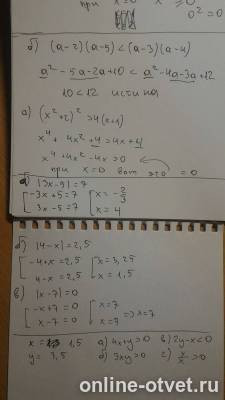 при x=0 x ≥0
0²=0
б) (a-2)(a-5)<(a-3)(a-4)
a²-5a-2a+10<a²-4a-3a+12
10<12 истина
а) (x²+2)²≥4(x+1)
x⁴+4x²+4≥4x+4
x⁴+4x²-4x≥0
при x=0 вот это =0
а) |3x-5|=7
-3x+5=7 x=-2/3
3x-5=7 x=4
б) |4-x|=2,5
-4+x=2,5 x=3,25
4-x=2,5 x=1,5
в) |x-7|=0
-x+7=0 x=7
x-7=0 x=7 => x=7
x= 1,5 а) 4x+y>0 в) 2y-x<0
y= 3,5 б) 3xy>0 г) >0
online-otvet.ru